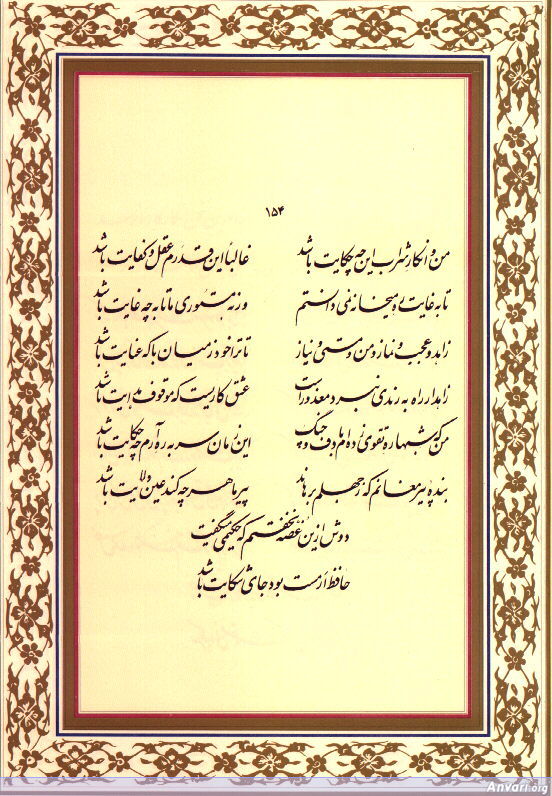 ۱۵۴
من و انکار شراب این چه حکایت باشد غالباً این قدرم عقل و کفایت باشد
تا به غایت ره میخانه نمی دانستم ورنه مستوری ما تا به چه غایت باشد
زاهد و عجب و نماز و من و مستی و نیاز تا ترا خود ز میان با که عنایت باشد
زاهد ار راه به رندی نبرد معذورست عشق کاریست که موقوف هدایت باشد
من که شبها ره تقوی زده ام با دف و چنگ این زمان سر به ره آرم چه حکایت باشد
بنده پیر مغانم که ز جهلم برهاند پیر ما هر چه کند عین ولایت باشد
دوش ازین غصه نخفتم که حکیمی میگفت
حافظ ار مست بود جای شکایت باشد
Anvari.org